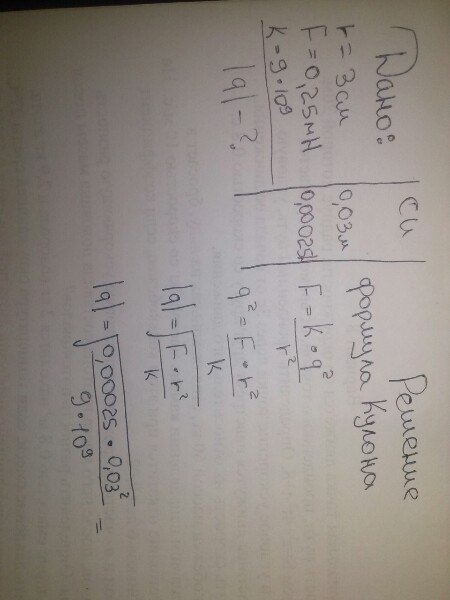 Дано:
r = 3 см
F = 0,25 мН
k = 9 · 10⁹
|q| - ?
СИ
0,03 м
0,00025Н
Решение
формула Кулона
F = k · q² / r²
q² = F · r² / k
|q| = √(F · r² / k)
|q| = √(0,00025 · 0,03² / 9 · 10⁹) =